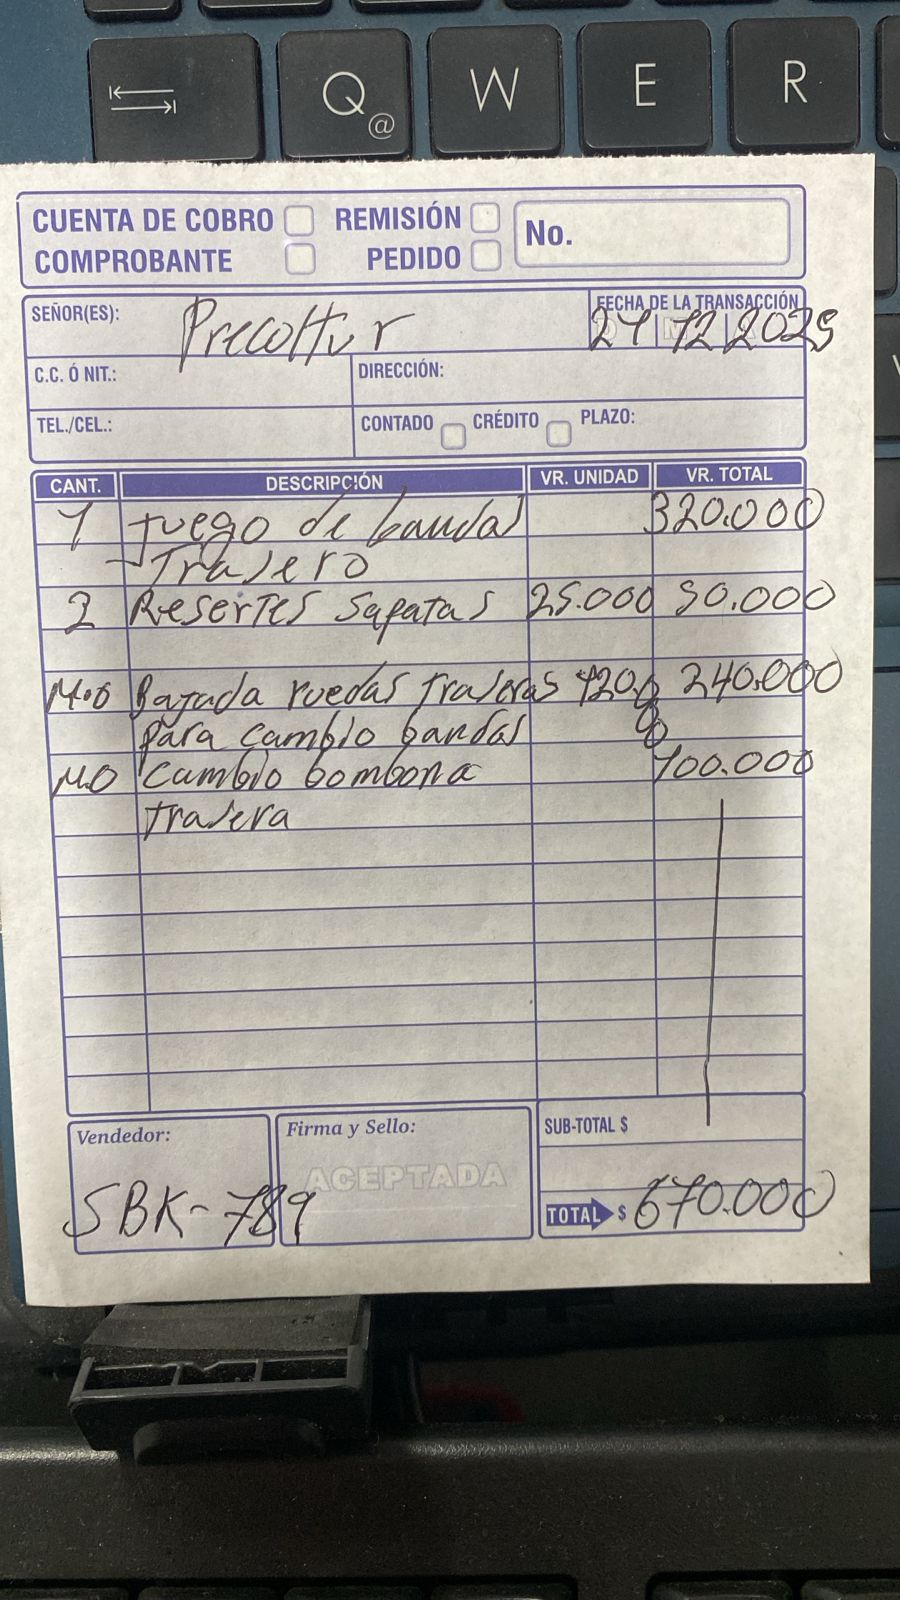 Q
@
W
E
R
CUENTA DE COBRO REMISIÓN No.
COMPROBANTE PEDIDO
SEÑOR(ES): Precoltur FECHA DE LA TRANSACCIÓN
12 2025
C.C. Ó NIT.: DIRECCIÓN:
TEL./CEL.: CONTADO CRÉDITO PLAZO:
CANT. DESCRIPCIÓN VR. UNIDAD VR. TOTAL
1 Juego de bandas 320.000
Trasero
2 Resertes sapatas 25.000 50.000
M.O Bajada ruedas traseras 120.000 240.000
para cambio bandas
M.O Cambio bombona 100.000
trasera
Vendedor: Firma y Sello: SUB-TOTAL $
ACEPTADA
SBK-789 TOTAL $ 670.000